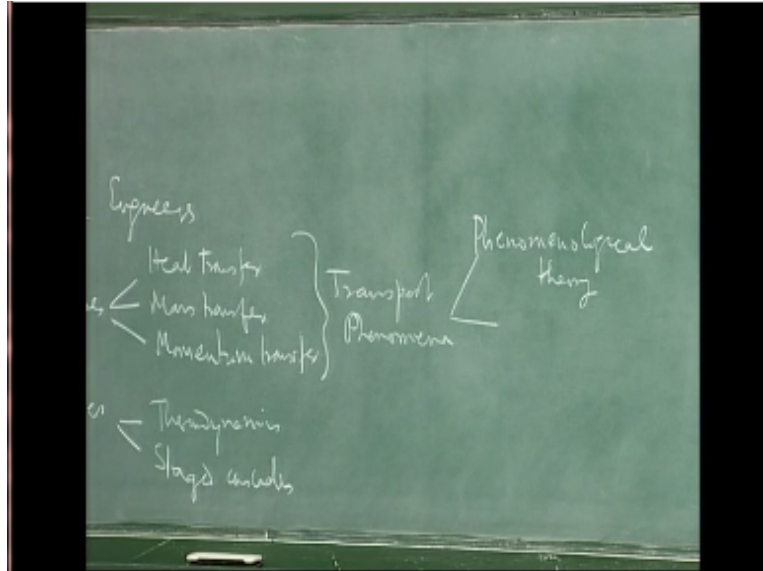 Engineers
Heat transfer
Mass transfer
Momentum transfer
Transport
Phenomena
Phenomenological
theory
Thermodynamics
Staged cascades